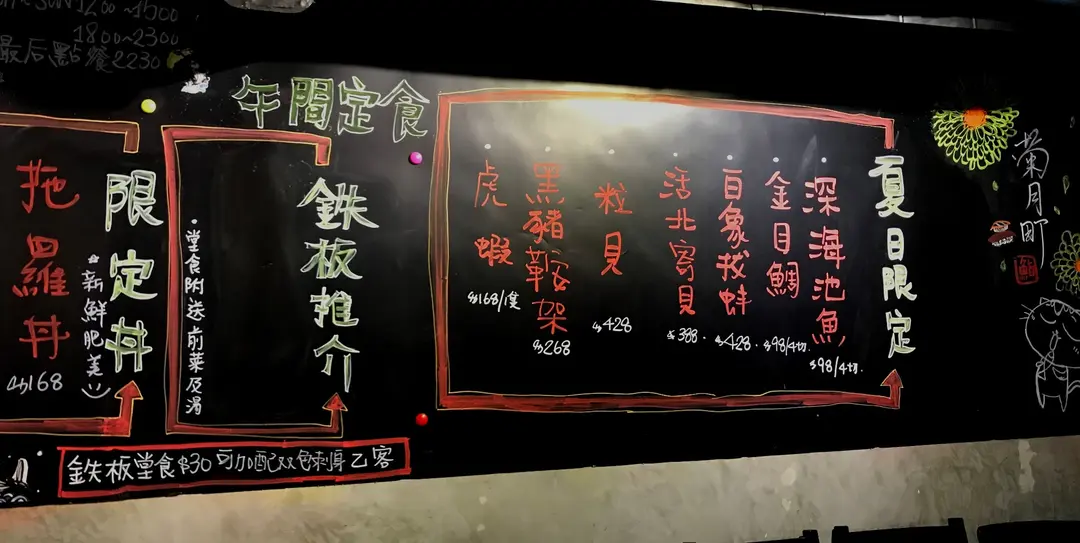 SUN1200~1500
1800~2300
最后點餐2230
午間定食
夏日限定
深海池魚
$98/4切.
金目鯛
$98/4切
百象拔蚌
$428.
活北寄貝
$388.
粒貝
$428
黑豬鞍架
$268
虎蝦
鉄板推介
·堂食附送前菜及湯
限定丼
新鮮肥美
拖羅丼
$168
鉄板堂食$30可加配双色刺身乙客
菊月町